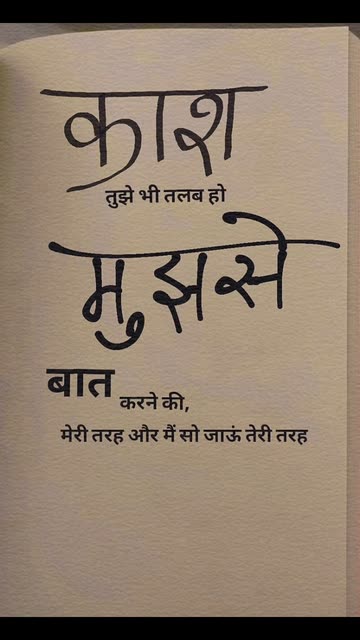 काश
तुझे भी तलब हो
मुझसे
बात
करने की,
मेरी तरह और मैं सो जाऊं तेरी तरह